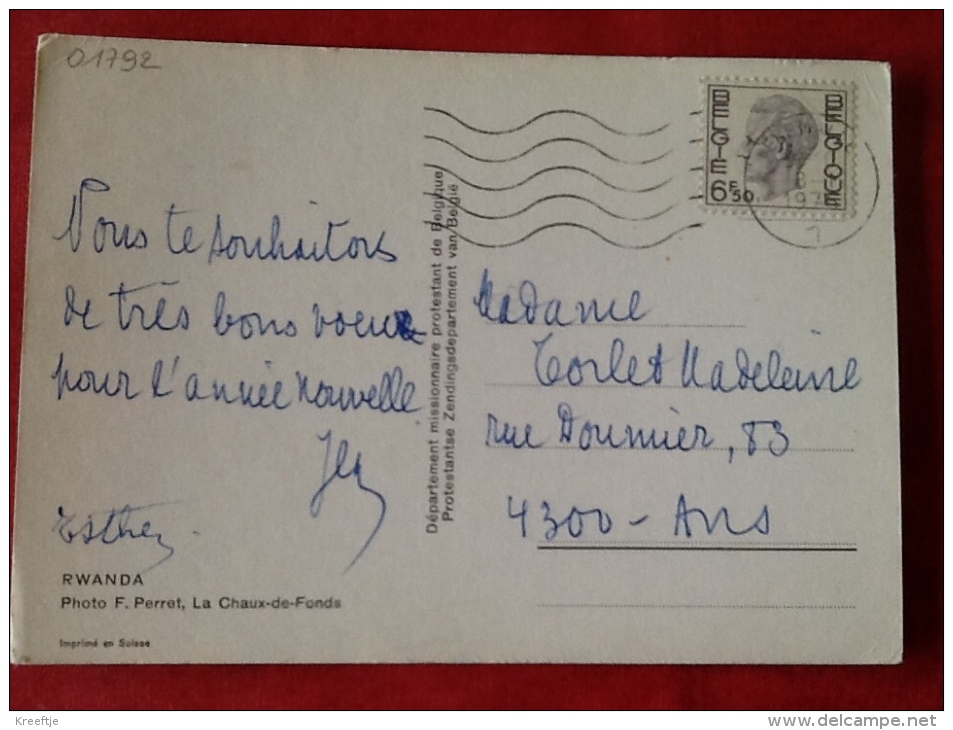 01792
BELGIE
BELGIQUE
6F50
197
1
Nous te souhaitons
de très bons voeux
pour l'année nouvelle
Esther.
RWANDA
Photo F. Perret, La Chaux-de-Fonds
Imprimé en Suisse
Département missionnaire protestant de Belgique
Protestantse Zendingsdepartement van België
Madame
Torlet Madeleine
rue Doumier, 83
4300 - Ans
Kreeftje
www.delcampe.net